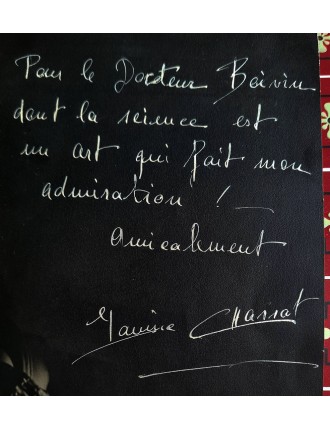 Pour le Docteur Boivin
dont la science est
un art qui fait mon
admiration !
Amicalement